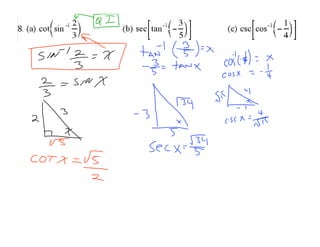 8. (a) cot(sin⁻¹ 2/3) (b) sec[tan⁻¹(−3/5)] (c) csc[cos⁻¹(−1/4)]
Q I
sin⁻¹ 2/3 = x
2/3 = sin x
2 3 x √5
cot x = √5/2
tan⁻¹(−3/5) = x
−3/5 = tan x
−3 √34 x 5
sec x = √34/5
cos⁻¹(−1/4) = x
cos x = −1/4
√15 4 x −1
csc x = 4/√15